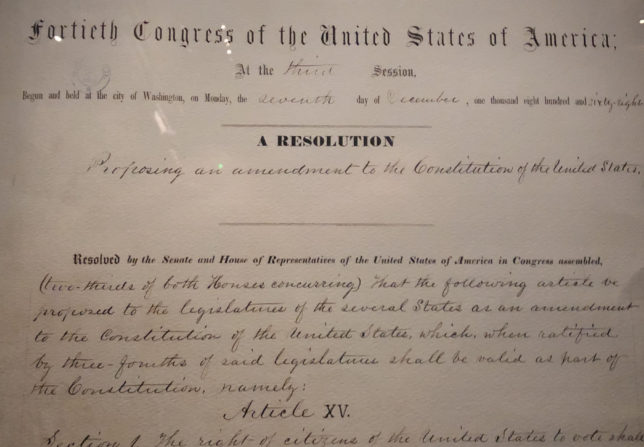 Fortieth Congress of the United States of America;
At the third Session,
Begun and held at the city of Washington, on Monday, the seventh day of December, one thousand eight hundred and sixty-eight
A RESOLUTION
Proposing an amendment to the Constitution of the United States.
Resolved by the Senate and House of Representatives of the United States of America in Congress assembled,
(two-thirds of both Houses concurring) That the following article be
proposed to the legislatures of the several States as an amendment
to the Constitution of the United States, which, when ratified
by three-fourths of said legislatures shall be valid as part of
the Constitution, namely:
Article XV.
Section 1. The right of citizens of the United States to vote shall